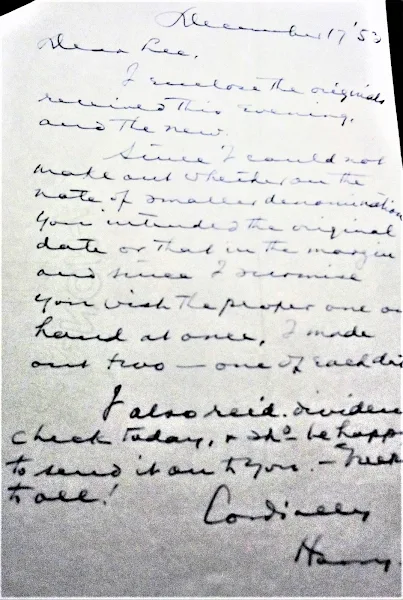 December 17 '53
Dear Lee,
I enclose the originals
received this evening,
and the new.
Since I could not
make out whether on the
note of smaller denomination
you intended the original
date or that in the margin
and since I surmise
you wish the proper one on
hand at once, I made
out two — one of each dat
I also recd. dividen
check today, & shd be happ
to send it on to you. —
to all!
Cordially
Harry.